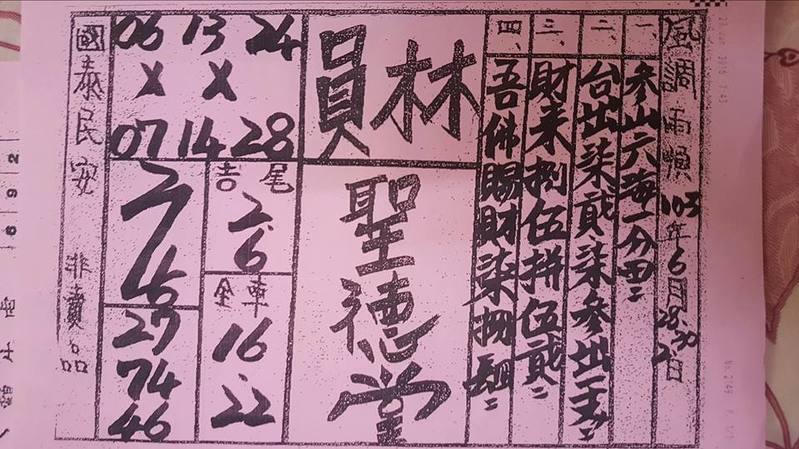 風調雨順 103年6月28.30.2日
一、參山六海一分田:
二、台出柒貳柒參出一主:
三、財來捌伍拼伍貳:
四、吾佛賜財柒捌
林員
聖德堂
06 13 24
X X
07 14 28
吉尾
2
6
金車
16
22
27
74
46
國泰民安 非賣品